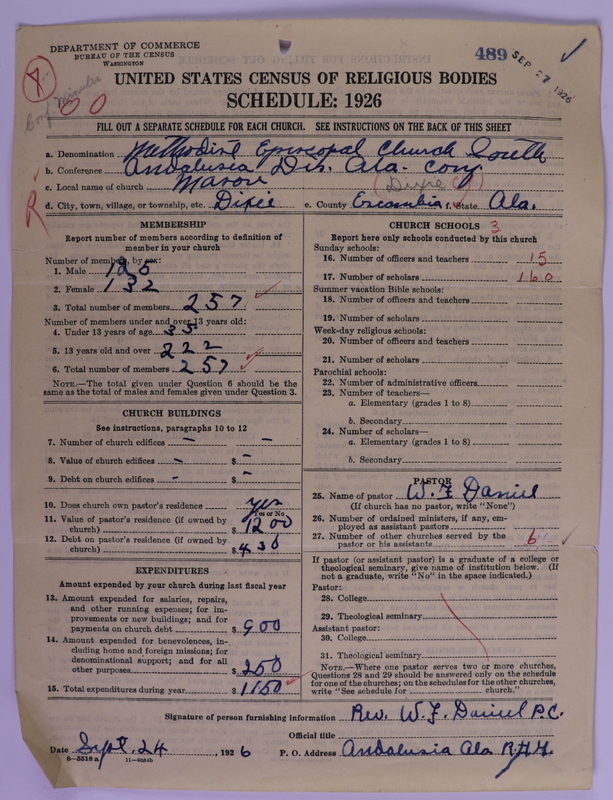 DEPARTMENT OF COMMERCE
BUREAU OF THE CENSUS
WASHINGTON
489 SEP 27 1926
UNITED STATES CENSUS OF RELIGIOUS BODIES
SCHEDULE: 1926
FILL OUT A SEPARATE SCHEDULE FOR EACH CHURCH. SEE INSTRUCTIONS ON THE BACK OF THIS SHEET
a. Denomination Methodist Episcopal Church South
b. Conference Andalusia Dis. Ala. Conf
c. Local name of church (Dixie
d. City, town, village, or township, etc. Dixie e. County Escambia f. State Ala.
MEMBERSHIP
Report number of members according to definition of
member in your church
Number of members, by sex:
1. Male 125
2. Female 132
3. Total number of members 257
Number of members under and over 13 years old:
4. Under 13 years of age 35
5. 13 years old and over 222
6. Total number of members 257
NOTE.—The total given under Question 6 should be
same as the total of males and females given under Question 3.
CHURCH BUILDINGS
See instructions, paragraphs 10 to 12
7. Number of church edifices – –
8. Value of church edifices – $ –
9. Debt on church edifices – $ –
10. Does church own pastor's residence yes
Yes or No
11. Value of pastor's residence (if owned by
church) $ 1200
12. Debt on pastor's residence (if owned by
church) $ 430
EXPENDITURES
Amount expended by your church during last fiscal year
13. Amount expended for salaries, repairs,
and other running expenses; for im-
provements or new buildings; and for
payments on church debt $ 900
14. Amount expended for benevolences, in-
cluding home and foreign missions; for
denominational support; and for all
other purposes $ 250
15. Total expenditures during year $ 1150
CHURCH SCHOOLS 3
Report here only schools conducted by this church
Sunday schools:
16. Number of officers and teachers 15
17. Number of scholars 160
Summer vacation Bible schools:
18. Number of officers and teachers
19. Number of scholars
Week-day religious schools:
20. Number of officers and teachers
21. Number of scholars
Parochial schools:
22. Number of administrative officers
23. Number of teachers—
a. Elementary (grades 1 to 8)
b. Secondary
24. Number of scholars—
a. Elementary (grades 1 to 8)
b. Secondary
PASTOR
25. Name of pastor W. F. Daniel
(If church has no pastor, write "None")
26. Number of ordained ministers, if any, em-
ployed as assistant pastors
27. Number of other churches served by the
pastor or his assistants 6
If pastor (or assistant pastor) is a graduate of a college or
theological seminary, give name of institution below. (If
not a graduate, write "No" in the space indicated.)
Pastor:
28. College
29. Theological seminary
Assistant pastor:
30. College
31. Theological seminary
NOTE.—Where one pastor serves two or more churches,
Questions 28 and 29 should be answered only on the schedule
for one of the churches; on the schedules for the other churches,
write "See schedule for church."
Signature of person furnishing information Rev. W. F. Daniel P.C.
Official title
Date Sept. 24, 1926 P. O. Address Andalusia Ala R#4.
8—5518 a 11—9084b